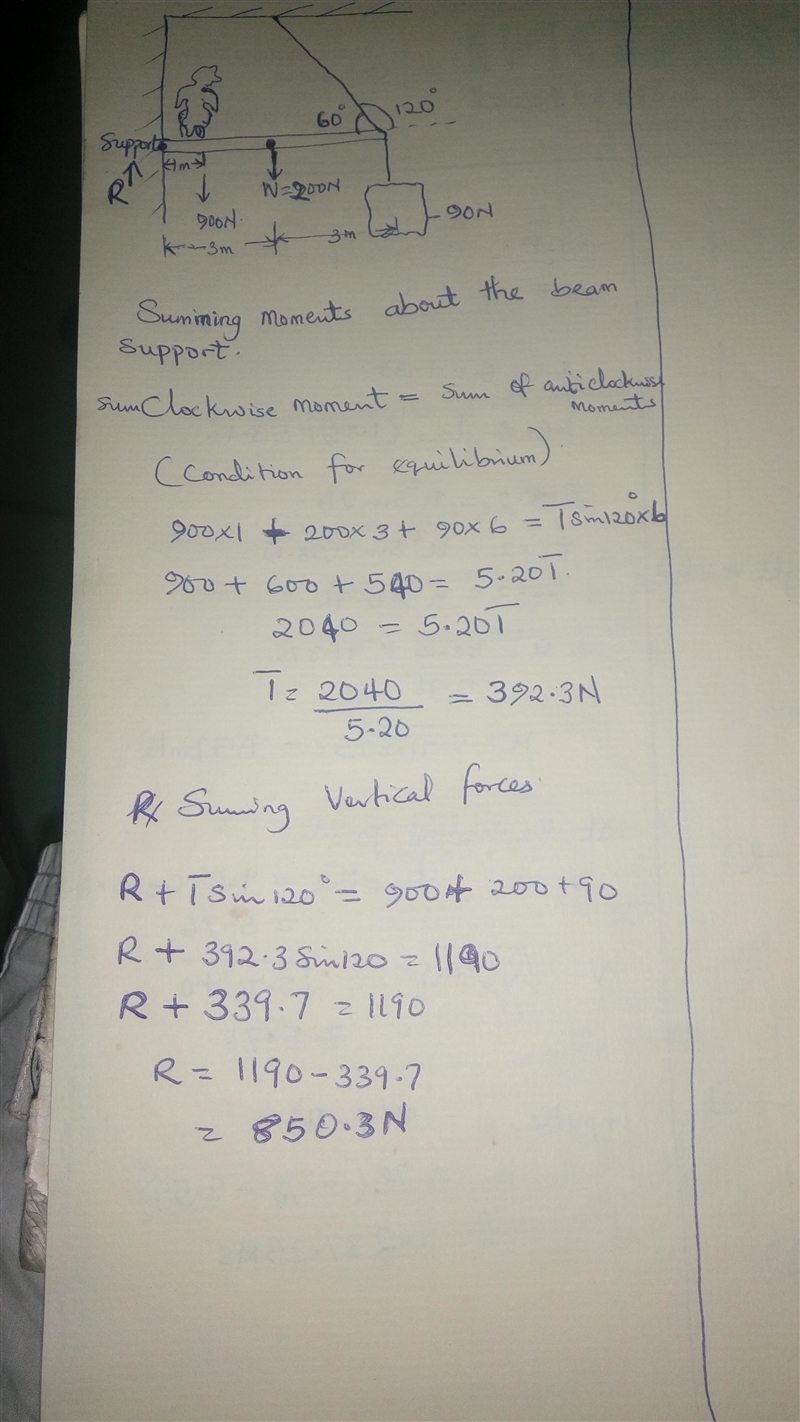 60° 120°
Support
R
1m
900N.
W=200N
90N
3m
3m
Summing moments about the beam
support.
sum Clockwise moment = sum of anticlockwise
moments
(Condition for equilibrium)
900×1 + 200×3 + 90×6 = Tsin120°×6
900 + 600 + 540 = 5.20T.
2040 = 5.20T
T = 2040/5.20 = 392.3N
Suming Vertical forces.
R + Tsin120° = 900 + 200 + 90
R + 392.3Sin120 = 1190
R + 339.7 = 1190
R = 1190 - 339.7
= 850.3N